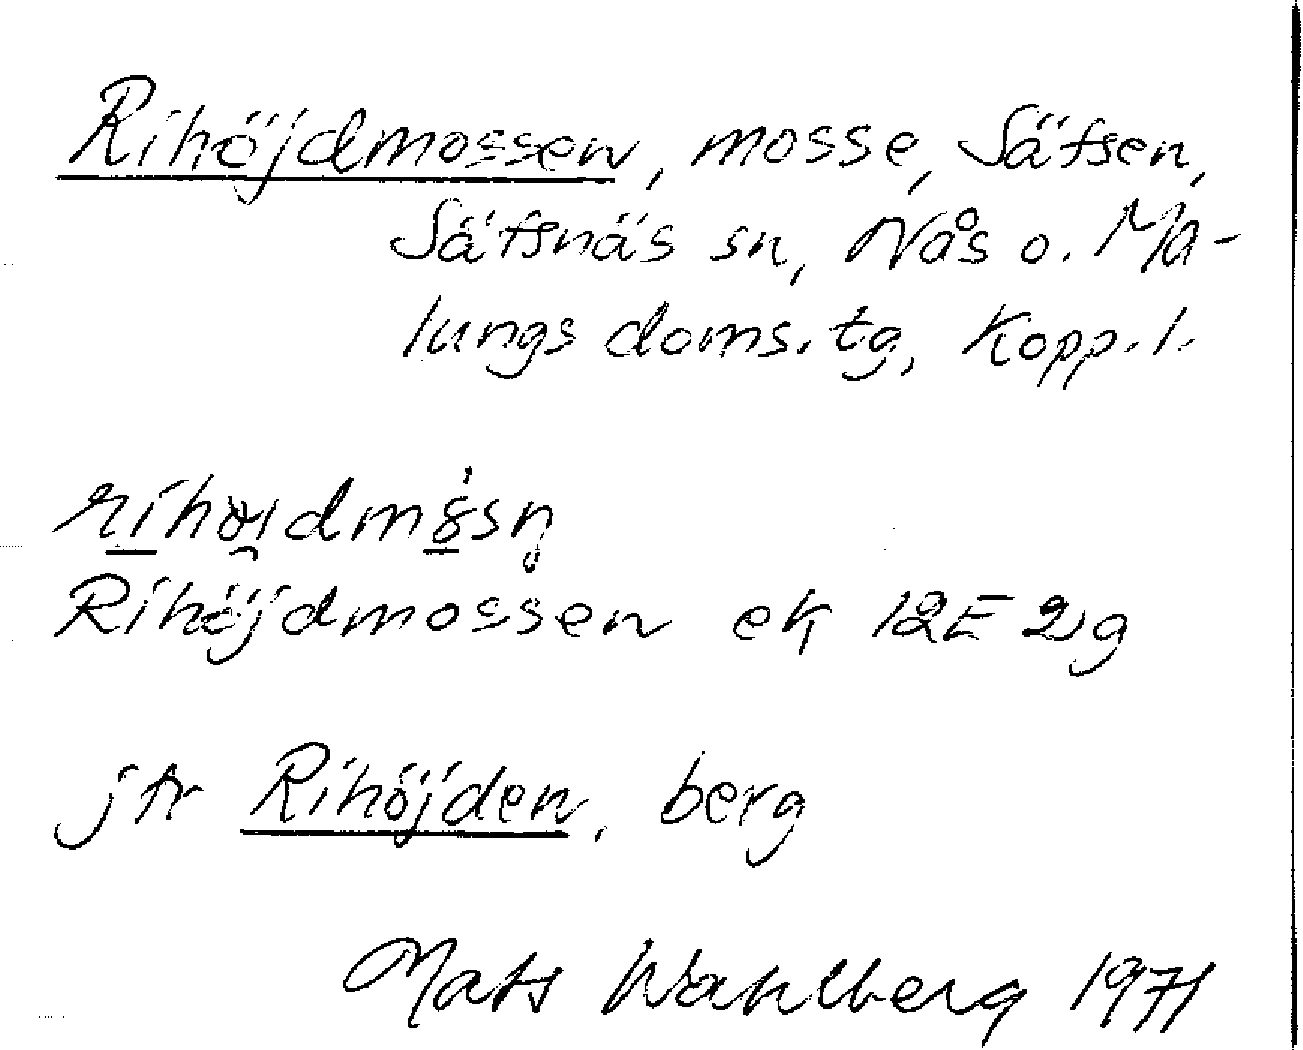 Rihöjdmossen, mosse, Säfsen,
Säfsnäs sn, Nås o. Ma-
lungs doms. tg, Kopp. l.
Rihöjdmossen ek 12E 2g
jfr Rihöjden, berg
Mats Wahlberg 1971